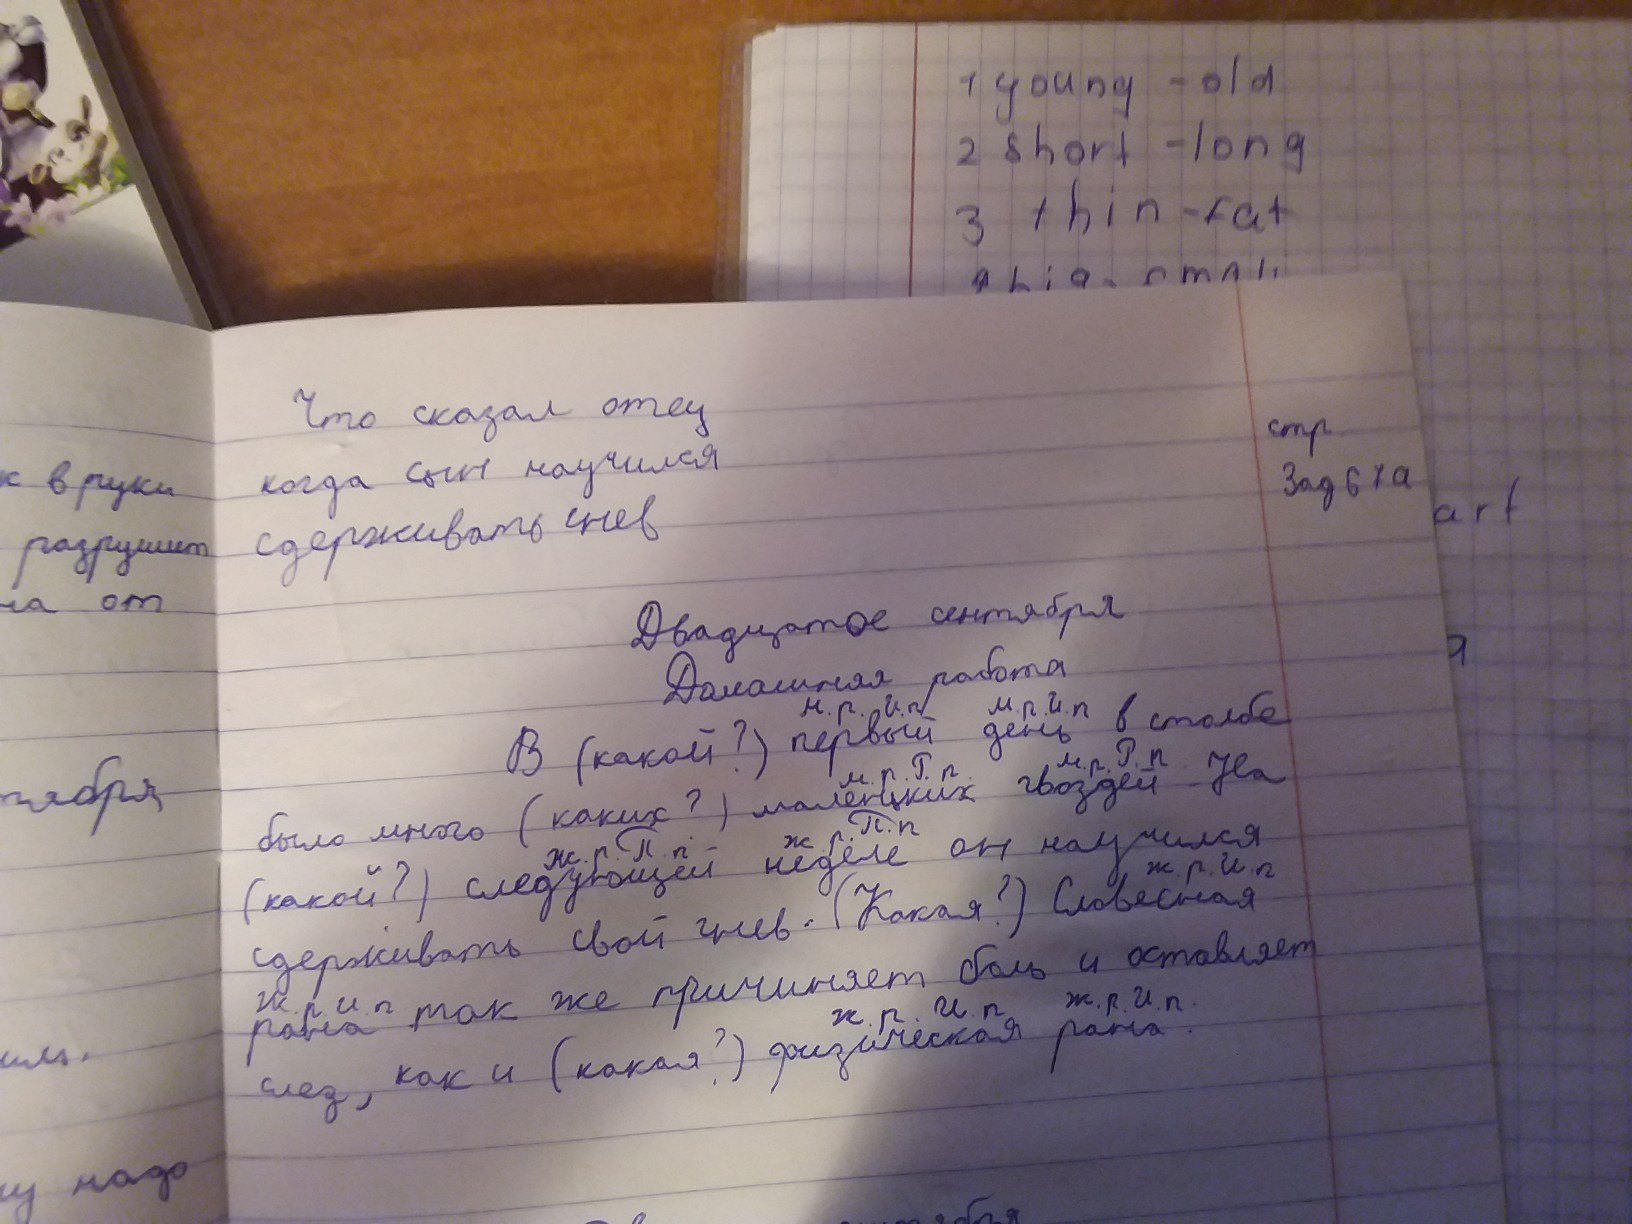 1 young - old
2 short - long
3 thin - fat
art
я
Что сказал отец
когда сын научился
сдерживать гнев
стр
Зад 67а
к в руки
разрушит
на от
тября
надо
Двадцатое сентября
Домашняя работа
м.р. И.п м.р.И.п
В (какой?) первый день в столбе
м.р.Г.п. м.р.Г.п
было много (каких?) маленьких гвоздей. На
ж.р.П.п. ж.р.П.п
(какой?) следующей неделе он научился
ж.р.И.п
сдерживать свой гнев. (Какая?) Словесная
ж.р.И.п
рана так же причиняет боль и оставляет
ж.р.И.п ж.р.И.п.
след, как и (какая?) физическая рана.